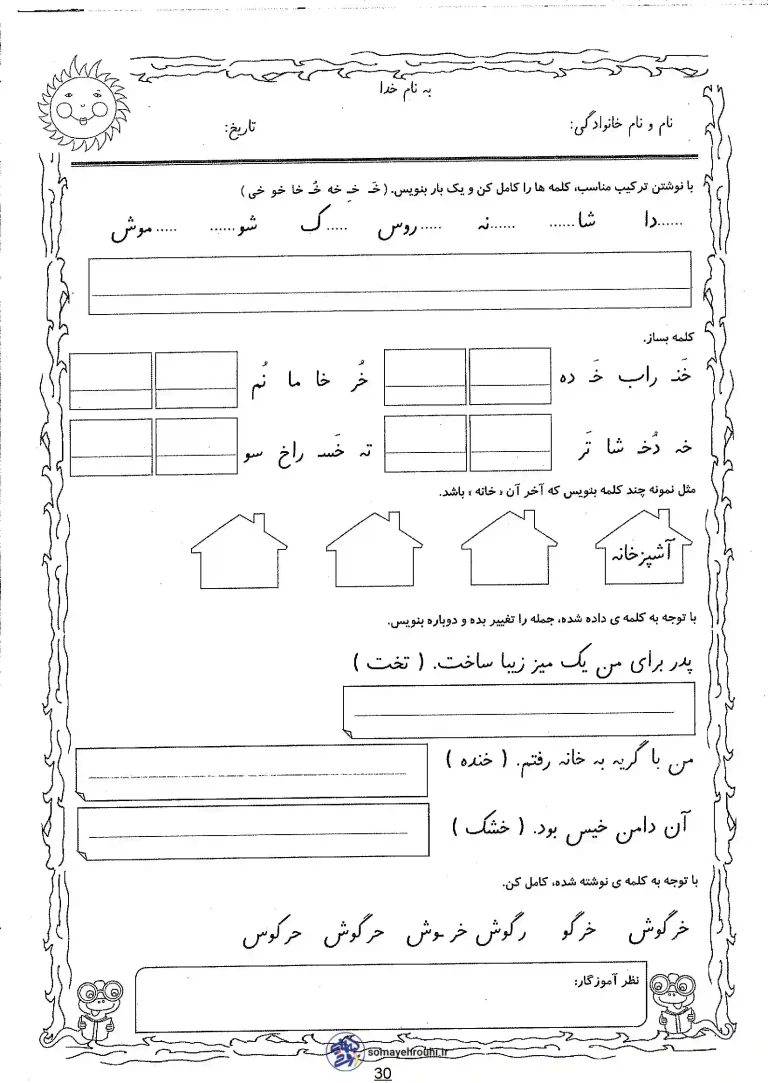 به نام خدا
نام و نام خانوادگی:
تاریخ:
با نوشتن ترکیب مناسب، کلمه ها را کامل کن و یک بار بنویس. ( خَـ خـِ خه خُـ خا خو خی )
......دا شا...... ......نه .....روس .....ک شو...... .....موش
کلمه بساز.
خَنـ راب خَـ ده خُر خا ما نُم
خه دُخـ شا تَر ته خَسـ راخ سو
مثل نمونه چند کلمه بنویس که آخر آن « خانه » باشد.
آشپزخانه
با توجه به کلمه ی داده شده، جمله را تغییر بده و دوباره بنویس.
پدر برای من یک میز زیبا ساخت. ( تخت )
من با گریه به خانه رفتم. ( خنده )
آن دامن خیس بود. ( خشک )
با توجه به کلمه ی نوشته شده، کامل کن.
خرگوش خرگو رگوش خر ـوش حرگوش حرکوس
نظر آموزگار:
somayehrouhi.ir
30